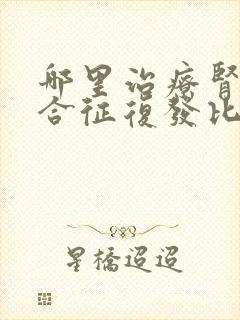 哪里治疗腎
合征復發比
星橋迢迢